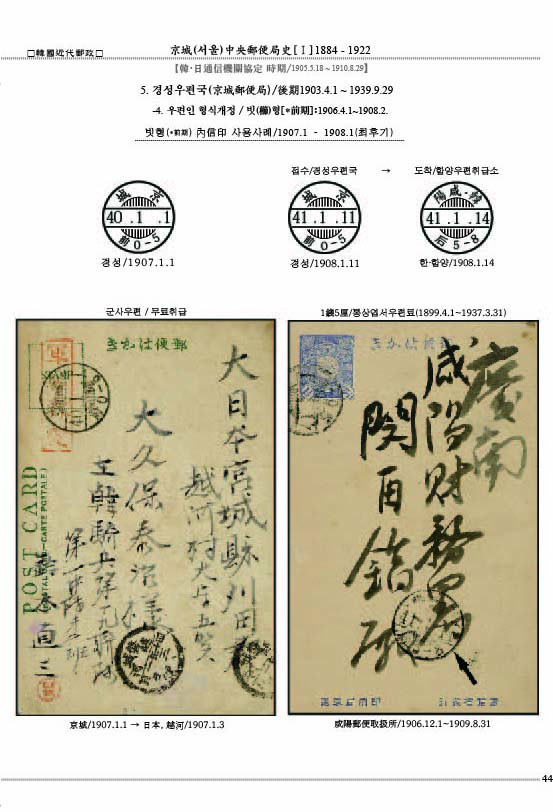 □韓國近代郵政□
京城(서울)中央郵便局史[Ⅰ]1884 - 1922
【韓·日通信機關協定 時期/1905.5.18~1910.8.29】
5. 경성우편국(京城郵便局)/後期1903.4.1 ~ 1939.9.29
-4. 우편인 형식개정 / 빗(櫛)형[*前期]:1906.4.1~1908.2.
빗형(*前期) 內信印 사용사례/1907.1 - 1908.1(최후기)
접수/경성우편국 → 도착/함양우편취급소
京城
40 .1 .1
前0-5
경성/1907.1.1
京城
41 .1 .11
前0-5
경성/1908.1.11
韓·咸陽
41 .1 .14
后5-8
한·함양/1908.1.14
군사우편 / 무료취급
郵便はかき
POST CARD
(POSTAL CARD-CARTE POSTALE)
大日本宮城縣刈田郡
越河村大字五賀
大久保泰治様
京城/1907.1.1 → 日本, 越河/1907.1.3
1錢5厘/통상엽서우편료(1899.4.1~1937.3.31)
郵便はかき
咸陽財務署
咸陽郵便取扱所/1906.12.1~1909.8.31
44